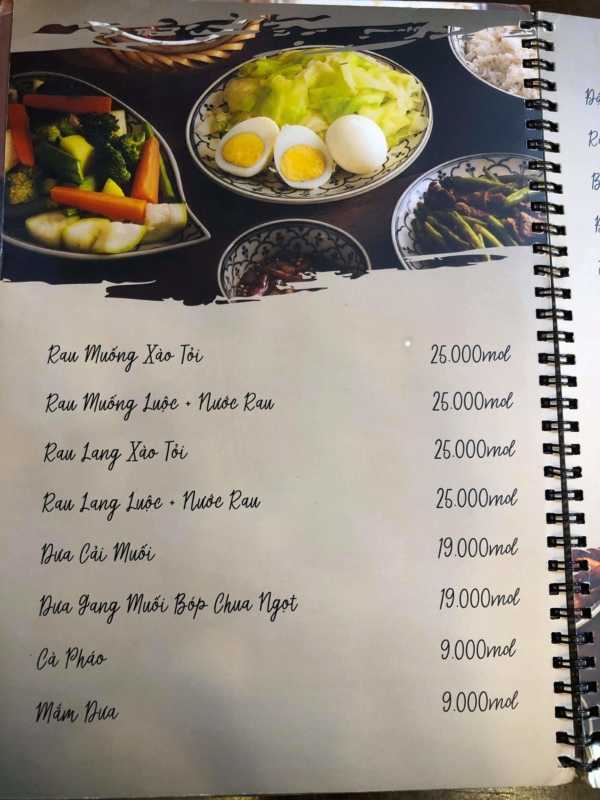 Rau Muống Xào Tỏi 25.000vnđ
Rau Muống Luộc + Nước Rau 25.000vnđ
Rau Lang Xào Tỏi 25.000vnđ
Rau Lang Luộc + Nước Rau 25.000vnđ
Dưa Cải Muối 19.000vnđ
Dưa Gang Muối Bóp Chua Ngọt 19.000vnđ
Cà Pháo 9.000vnđ
Mắm Dưa 9.000vnđ